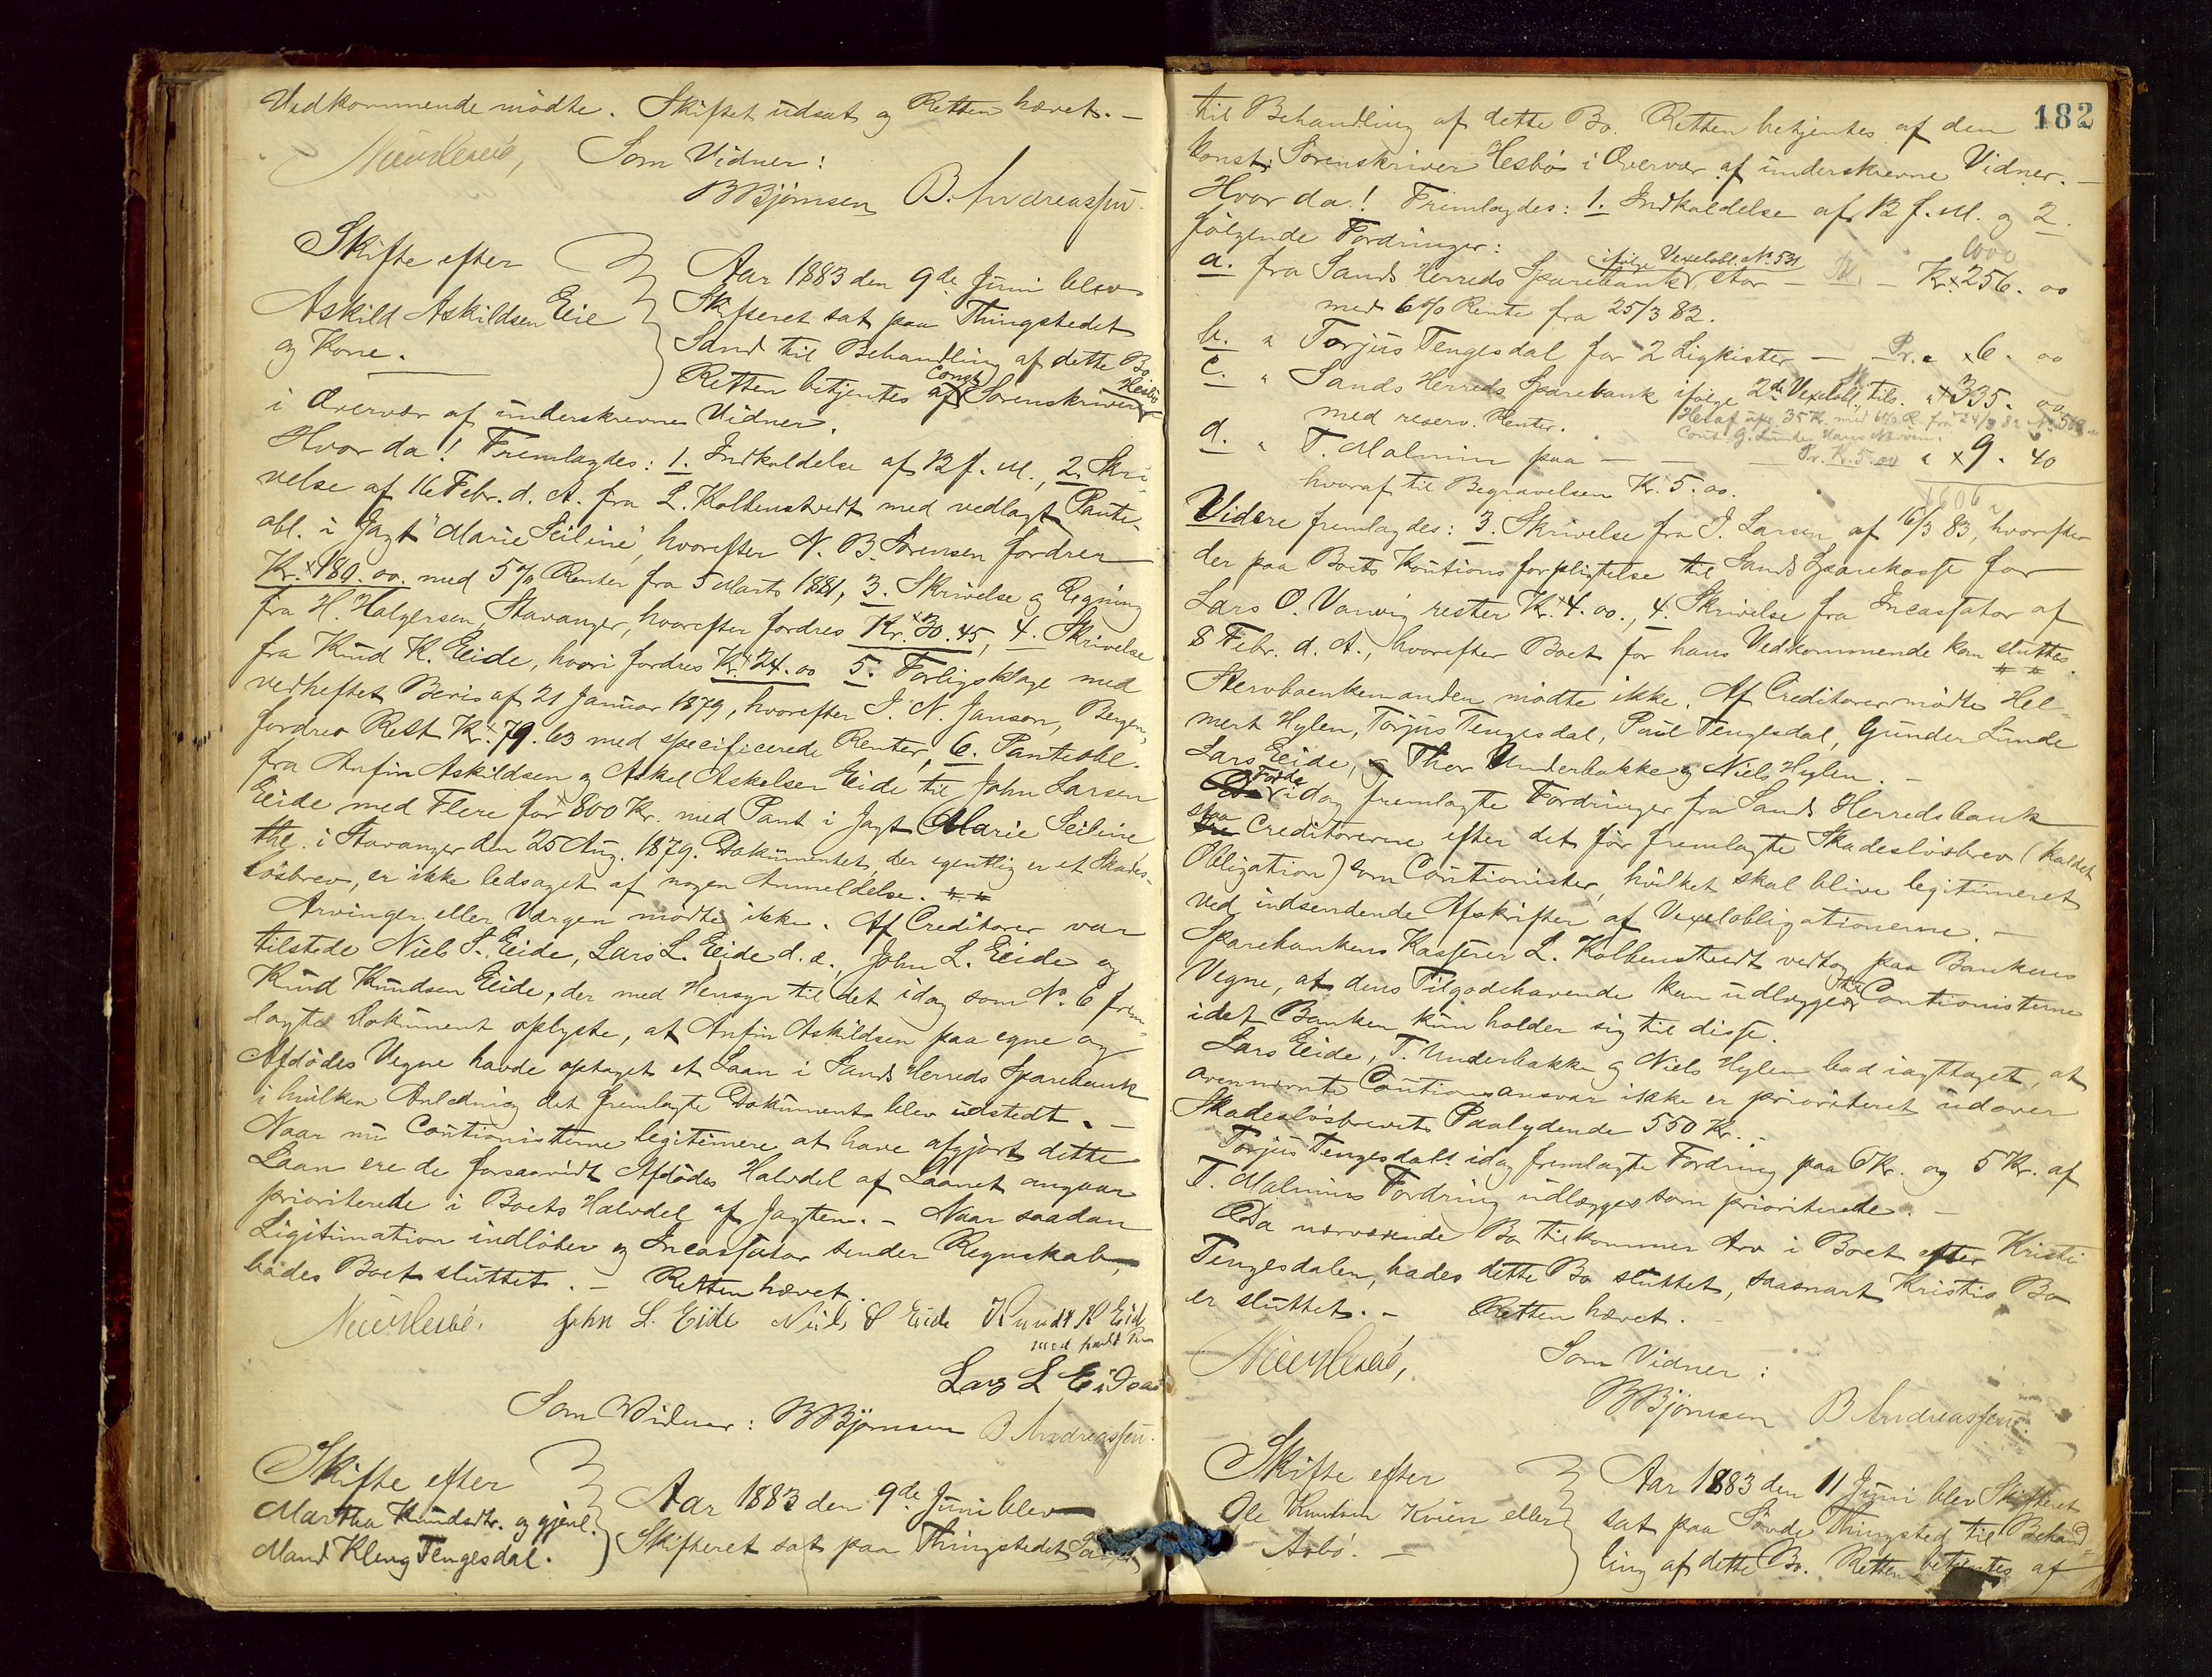 Vedkommende mødte. Skiftet udsat og Retten hævet. –
Som Vidner:
BBjørnsen B. Andreassen.
Skifte efter
Askild Askildsen Eie
og Kone.
Aar 1883 den 9de Juni blev
Skifteret sat paa Thingstedet
Sand til Behandling af dette Bo
Retten betjentes af const Sorenskriver Hesbø
i Overvær af underskrevne Vidner.
Hvor da! Fremlagdes: 1. Indkaldelse af 12 f. M., 2. Skri-
velse af 16 Febr. d. A. fra L. Kolbenstvedt med vedlagt Pante-
obl. i Jagt "Marie Seiline", hvorefter N. B. Sørensen fordrer
Kr. 180. 00. med 5 % Renter fra 5 Marts 1881, 3. Skrivelse og Regning
fra H. Halgersen, Stavanger, hvorefter fordres Kr. 30. 45, 4. Skrivelse
fra Knud K. Eide, hvori fordres Kr. 24. 00 5. Forligsklage med
vedheftet Bevis af 21 Januar 1879, hvorefter J. N. Janson, Bergen,
fordrer Rest Kr. 79. 63 med specificerede Renter, 6. Panteobl.
fra Anfin Askildsen og Askel Askelsen Eide til John Larsen
Eide med Flere for 800 Kr. med Pant i Jagt Marie Seiline
thl. i Stavanger den 25 Aug. 1879. Dokumentet, der egentlig er et Skades-
løsbrev, er ikke ledsaget af nogen Anmeldelse.
Arvinger eller Værgen mødte ikke. Af Creditorer var
tilstede Niels S. Eide, Lars L. Eide d. æ., John L. Eide og
Knud Knudsen Eide, der med Hensyn til det idag som No. 6 frem-
lagte Dokument oplyste, at Anfin Askildsen paa egne og
Afdødes Vegne havde optaget et Laan i Sands Herreds Sparebank
i hvilken Anledning det fremlagte Dokument blev udstedt. –
Naar nu Cautionisterne legitimere at have afgjort dette
Laan ere de forsaavidt Afdødes Halvdel af Laanet angaar
prioriterede i Boets Halvdel af Jagten. – Naar saadan
Legitimation indløber og Incassator sender Regnskab,
hades Boet sluttet. – Retten hævet.
John L. Eide Niels S Eide Knudt K Eide
med paahl Pen
Lars L Eide
Som Vidner: BBjørnsen B Andreassen.
Skifte efter
Martha Knudsdtr. og gjenl.
Mand Kleng Tengesdal.
Aar 1883 den 9de Juni blev
Skifteret sat paa Thingstedet Sand
182
til Behandling af dette Bo. Retten betjentes af den
konst. Sorenskriver Hesbø i Overvær af underskrevne Vidner. –
Hvor da! Fremlagdes: 1. Indkaldelse af 12 f. M. og 2.
følgende Fordringer:
a. fra Sands Herreds Sparebank ifølge Vexelobl. No. 531 stor – Kr. 256. 00
med 6 % Rente fra 25/3 82.
b. " Torjus Tengesdal for 2 Ligkister – Pr. " 6. 00
c. " Sands Herreds Sparebank ifølge 2de Vexelobl. tils. " 335. 00
med reserv. Renter.
d. " T. Malmin paa – Pr. Kr. 5. 00 " 9. 40
hvoraf til Begravelsen Kr. 5. 00.
Videre fremlagdes: 3. Skrivelse fra J. Larsen af 16/3 83, hvorefter
der paa Boets Kautionsforpligtelse til Sands Sparekasse for
Lars O. Vanvig rester Kr. 4. 00., 4. Skrivelse fra Incassator af
8 Febr. d. A., hvorefter Boet for hans Vedkommende kan sluttes.
Stervboenkemanden mødte ikke. Af Creditorer mødte Hel-
mert Hylen, Torjus Tengesdal, Paul Tengesdal, Gunder Lunde
Lars Eide, og Thor Underbakke og Niels Hylen. –
For de idag fremlagte Fordringer fra Sands Herredsbank
staa Creditorerne efter det før fremlagte Skadesløsbrev (kaldet
Obligation) som Cautionister, hvilket skal blive legitimeret
ved indsendende Afskrifter af Vexelobligationerne. –
Sparebankens Kasserer L. Kolbenstvedt vedtog paa Bankens
Vegne, at dens Tilgodehavende kan udlægges til Cautionisterne
idet Banken kun holder sig til disse.
Lars Eide, T. Underbakke og Niels Hylen bad iagttaget, at
ovennævnte Cautionsansvar ikke er prioriteret udover
Skadesløsbrevets Paalydende 550 Kr. –
Torjus Tengesdals idag fremlagte Fordring paa 6 Kr. og 5 Kr. af
T. Malmins Fordring udlægges som prioriterede. –
Da nærværende Bo tilkommer Arv i Boet efter Kristi
Tengesdalen, hades dette Bo sluttet, saasnart Kristis Bo
er sluttet. – Retten hævet.
Som Vidner:
BBjørnsen B Andreassen.
Skifte efter
Ole Knutsen Kvien eller
Aabø. –
Aar 1883 den 11 Juni blev Skifteret
sat paa Søvde Thingsted til Behand-
ling af dette Bo. Retten betjentes af